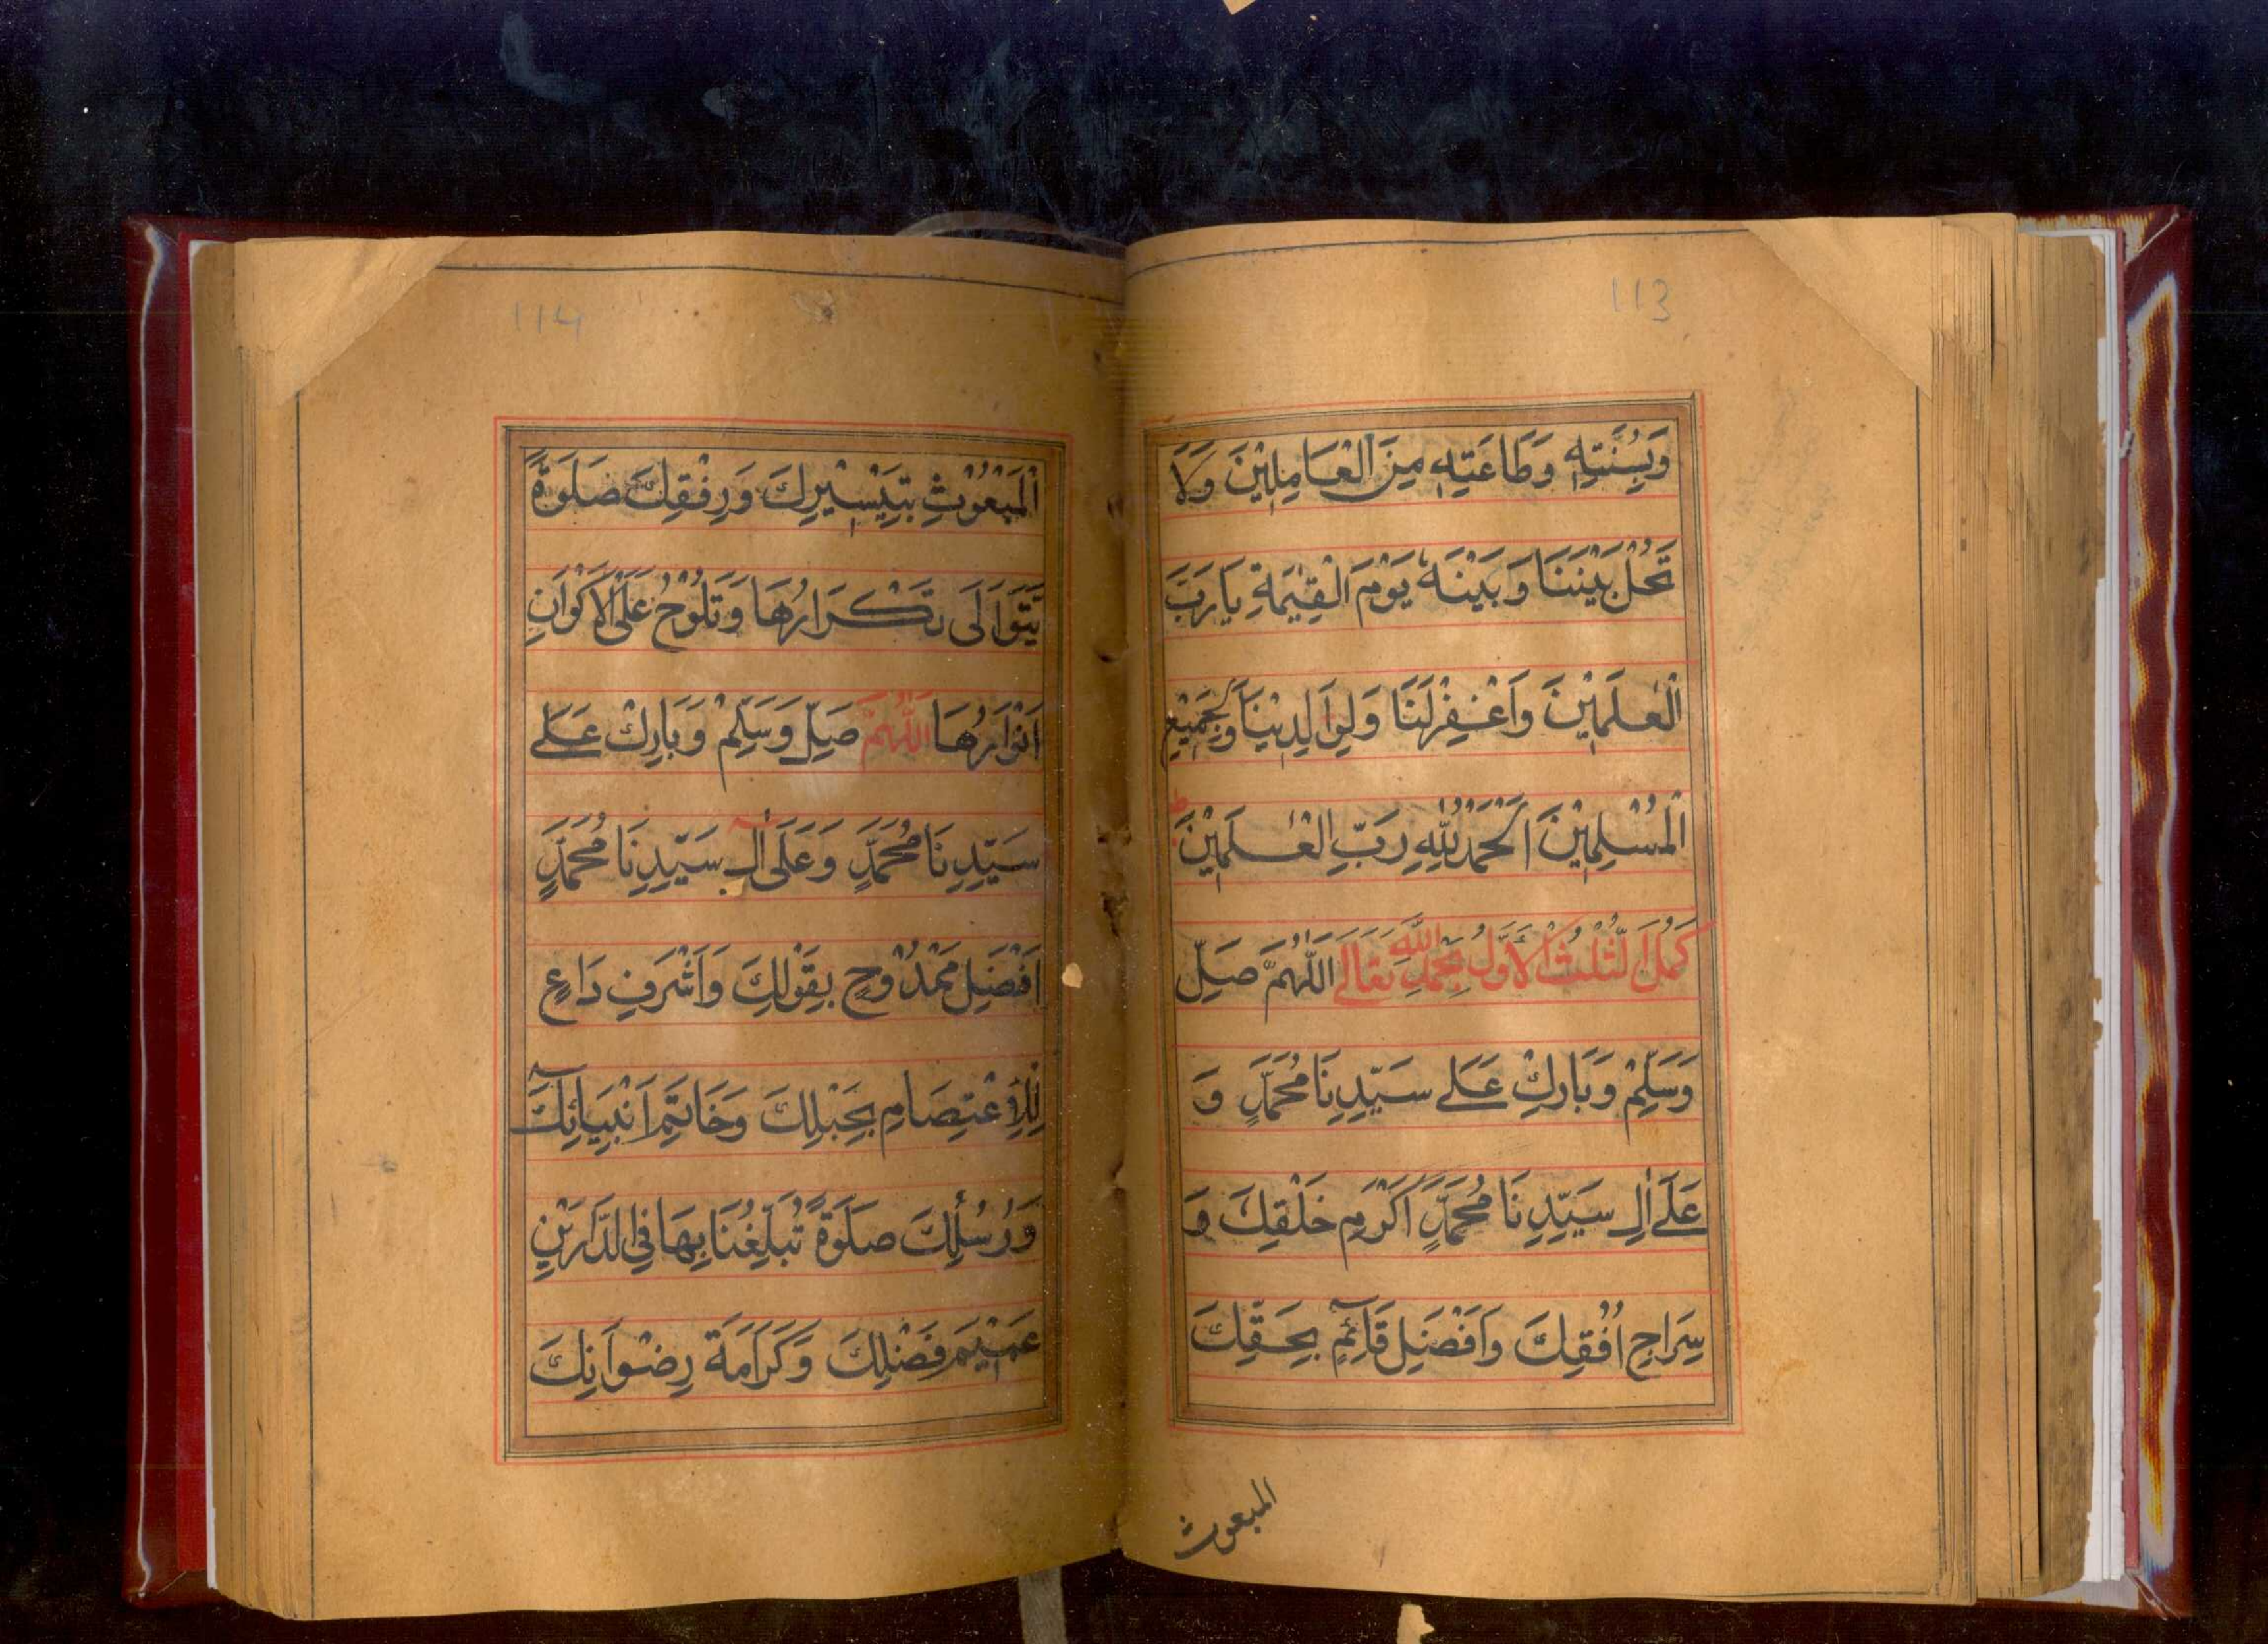 113
وَبِسُنَّتِهٖ وَطَاعَتِهٖ مِنَ الْعَامِلِيْنَ وَلَا
تَحُلْ بَيْنَنَا وَبَيْنَهٗ يَوْمَ الْقِيٰمَةِ يَا رَبَّ
الْعٰلَمِيْنَ وَاغْفِرْ لَنَا وَلِوَالِدِيْنَا وَلِجَمِيْعِ
الْمُسْلِمِيْنَ اَلْحَمْدُ لِلّٰهِ رَبِّ الْعٰلَمِيْنَ ط
كَمُلَ الثُّلُثُ الْاَوَّلُ بِحَمْدِ اللّٰهِ تَعَالٰے اَللّٰهُمَّ صَلِّ
وَسَلِّمْ وَبَارِكْ عَلٰے سَيِّدِنَا مُحَمَّدٍ وَ
عَلٰے اٰلِ سَيِّدِنَا مُحَمَّدٍ اَكْرَمِ خَلْقِكَ وَ
سِرَاجِ اُفُقِكَ وَاَفْضَلِ قَآئِمٍ بِحَقِّكَ
المبعوث
114
الْمَبْعُوْثِ بِتَيْسِيْرِكَ وَرِفْقِكَ صَلٰوةً
يَتَوَالٰى تَكْرَارُهَا وَتَلُوْحُ عَلَى الْاَكْوَانِ
اَنْوَارُهَا اَللّٰهُمَّ صَلِّ وَسَلِّمْ وَبَارِكْ عَلٰے
سَيِّدِنَا مُحَمَّدٍ وَعَلٰى اٰلِ سَيِّدِنَا مُحَمَّدٍ
اَفْضَلِ مَمْدُوْحٍ بِقَوْلِكَ وَاَشْرَفِ دَاعٍ
لِلْاِعْتِصَامِ بِحَبْلِكَ وَخَاتَمِ اَنْبِيَآئِكَ
وَرُسُلِكَ صَلٰوةً تُبَلِّغُنَا بِهَا فِي الدَّارَيْنِ
عَمِيْمَ فَضْلِكَ وَكَرَامَةَ رِضْوَانِكَ